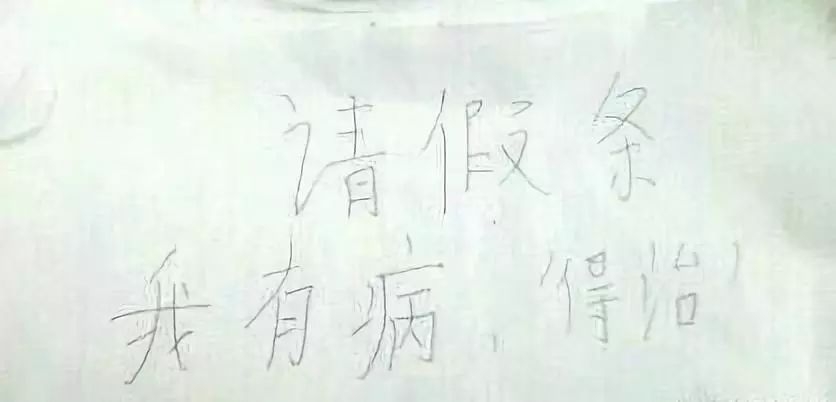 请假条
我有病，得治！